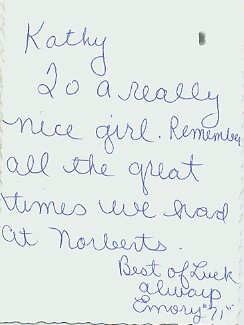 Kathy
To a really
nice girl. Remember
all the great
times we had
at Norberts.
Best of Luck
always
Emory "71"